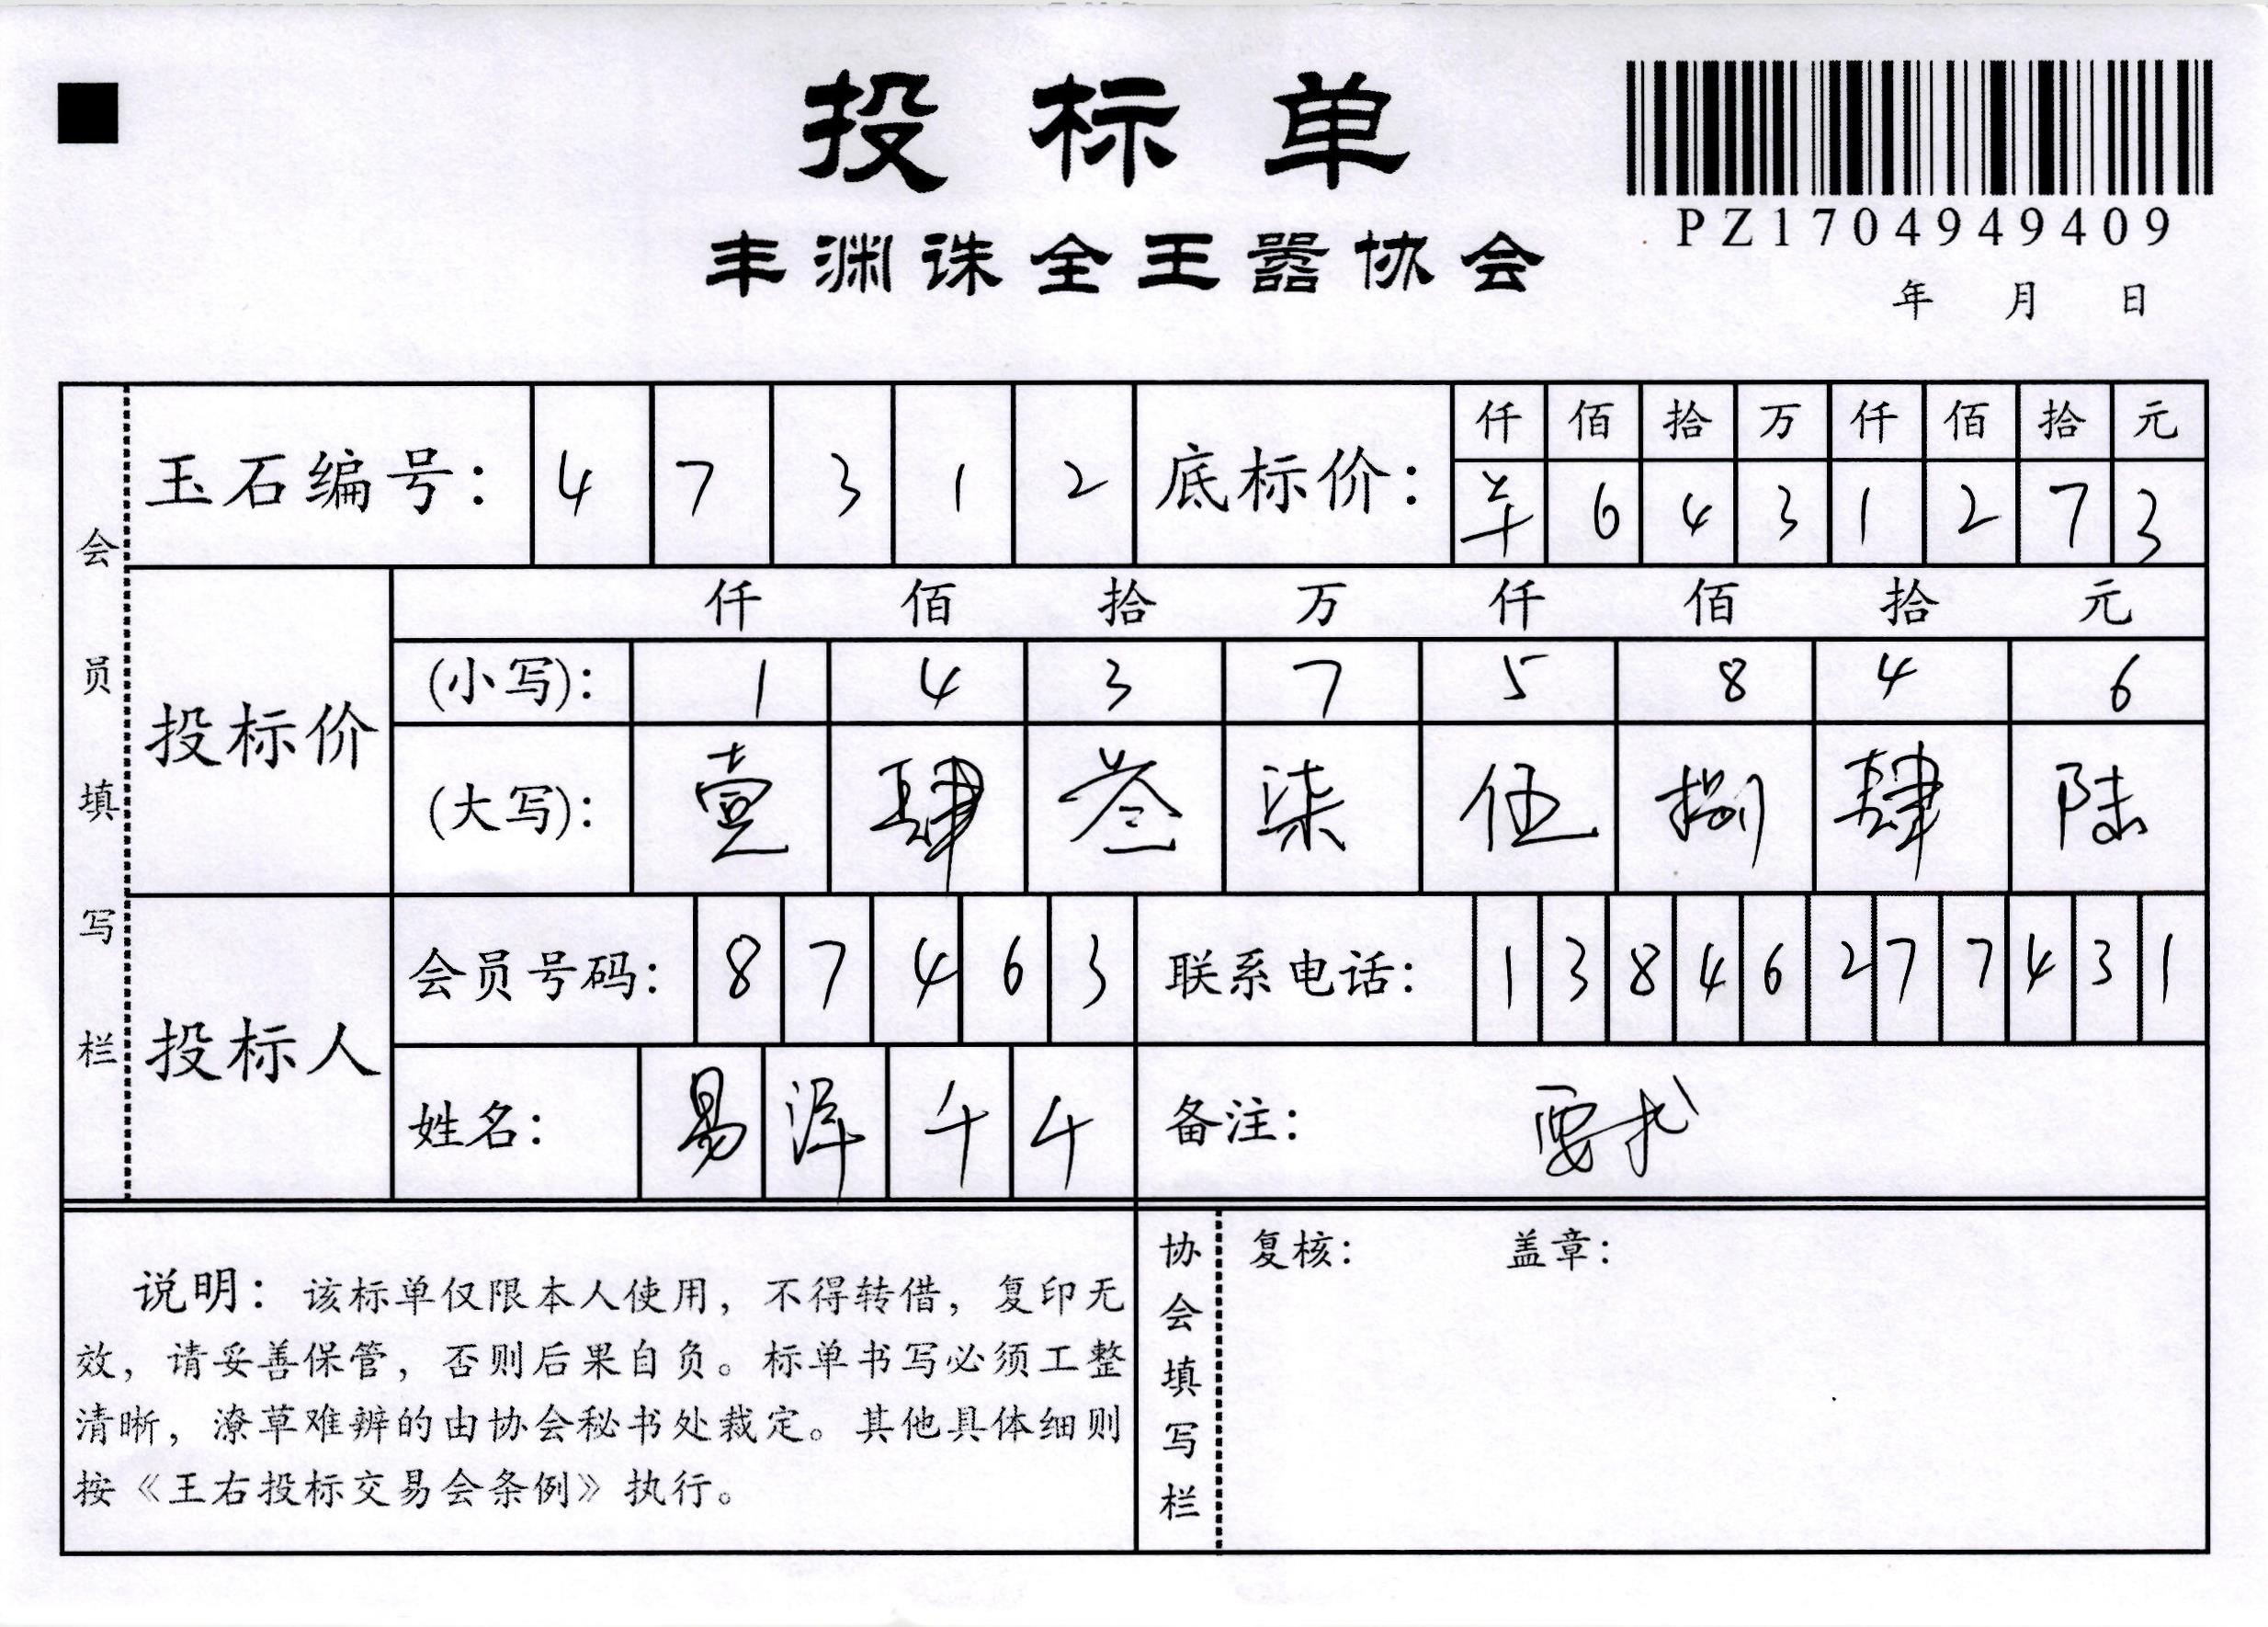 投标单
PZ1704949409
丰渊诛全王嚣协会
年 月 日
会员填写栏
玉石编号: 4 7 3 1 2
底标价: 仟 佰 拾 万 仟 佰 拾 元
6 4 3 1 2 7 3
投标价
仟 佰 拾 万 仟 佰 拾 元
(小写): 1 4 3 7 5 8 4 6
(大写): 壹 肆 叁 柒 伍 捌 肆 陆
投标人
会员号码: 8 7 4 6 3
联系电话: 1 3 8 4 6 2 7 7 4 3 1
姓名: 易 洋 千
备注:
说明: 该标单仅限本人使用, 不得转借, 复印无
效, 请妥善保管, 否则后果自负。标单书写必须工整
清晰, 潦草难辨的由协会秘书处裁定。其他具体细则
按《王右投标交易会条例》执行。
协会填写栏
复核: 盖章: